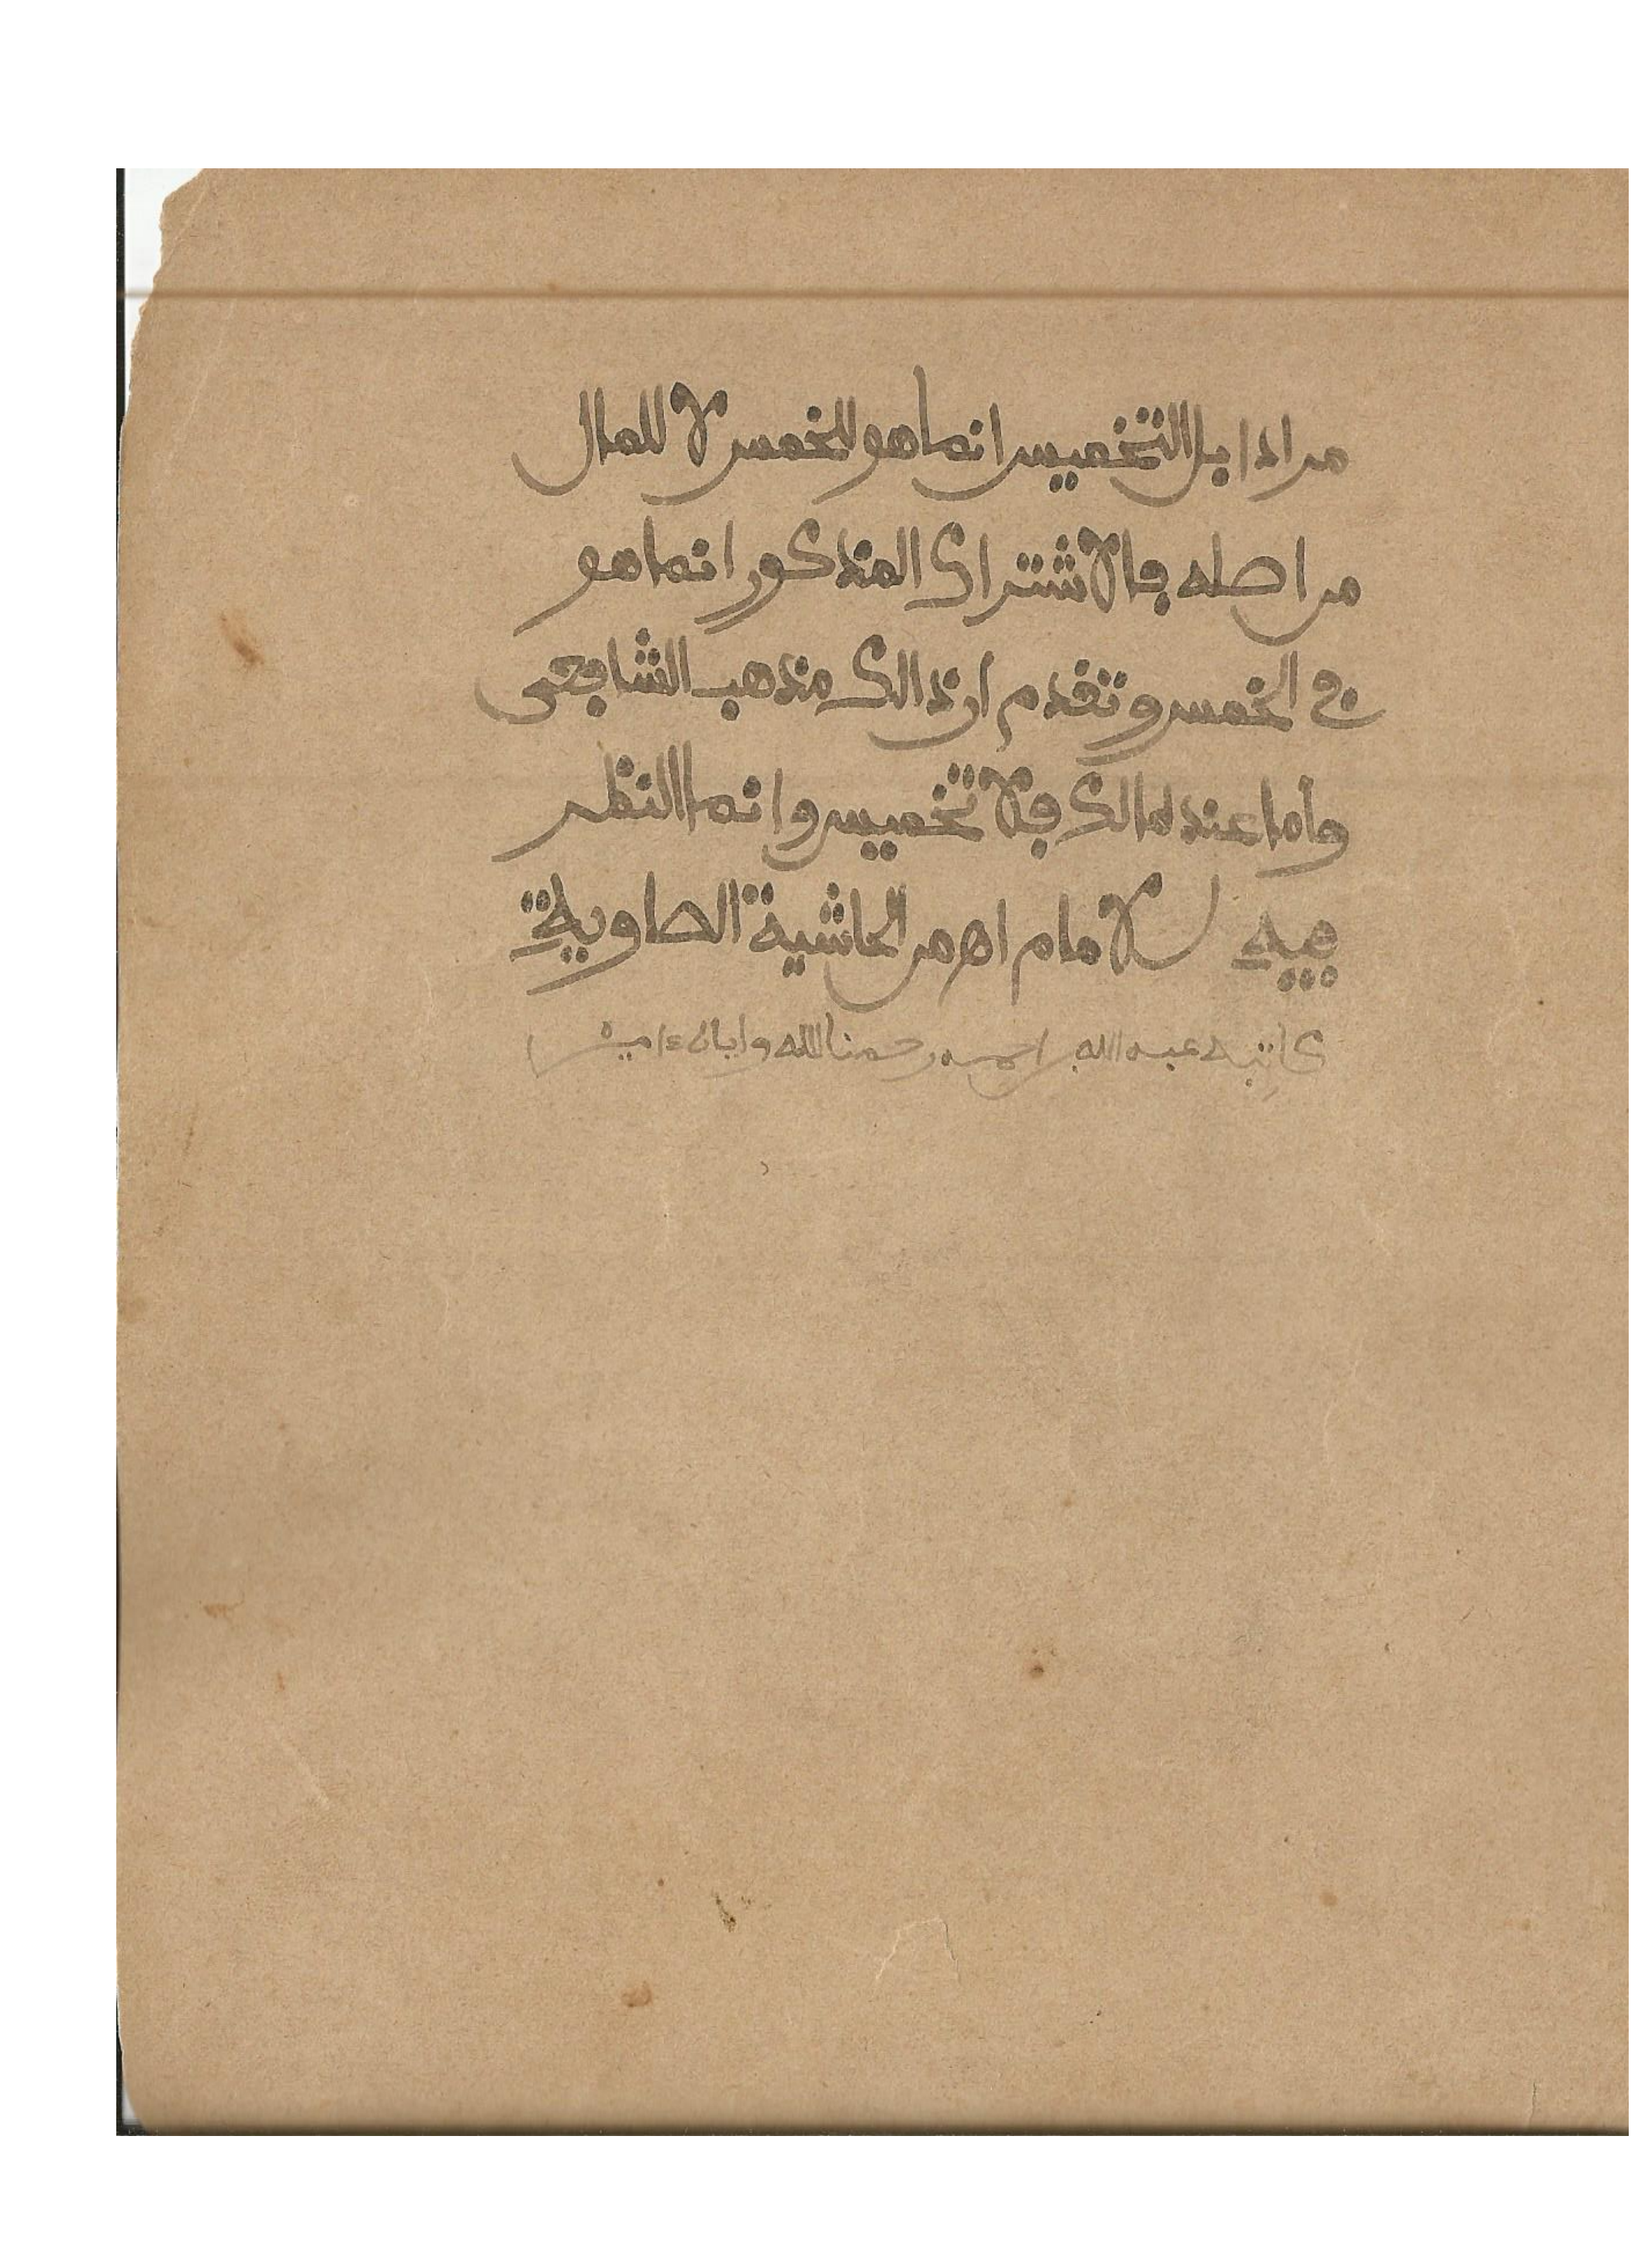 مرادا بل التخميس انما هو للخمس لا للمال
من اصله فالاشتراك المذكور انما هو
في الخمس وتقدم ان ذالك مذهب الشافعى
وأما عند مالك فلا تخميس وانما النظر
فيه للامام اهـ من الحاشية الصاوية
كاتبه عبد الله بن احمد رحمنا الله واياه ءامين